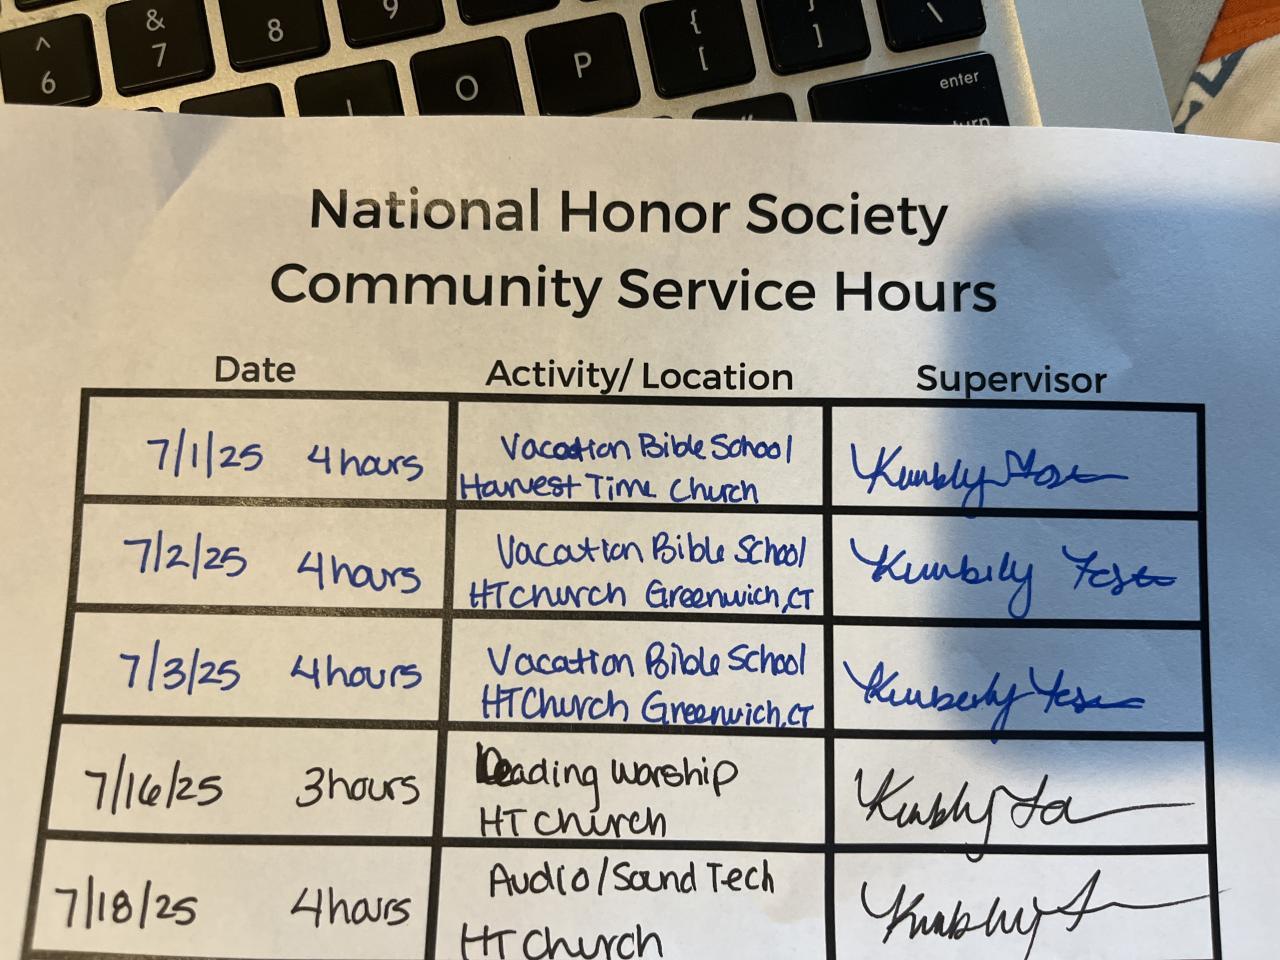 ^
6
&
7
8
9
O
P
{
[
}
]
\
enter
National Honor Society
Community Service Hours
Date Activity/ Location Supervisor
7/1/25 4 hours Vacation Bible School
Harvest Time Church
7/2/25 4 hours Vacation Bible School
HT Church Greenwich, CT
7/3/25 4 hours Vacation Bible School
HT Church Greenwich, CT
Kimberly
7/16/25 3 hours Leading Worship
HT Church
7/18/25 4 hours Audio/Sound Tech
HT Church